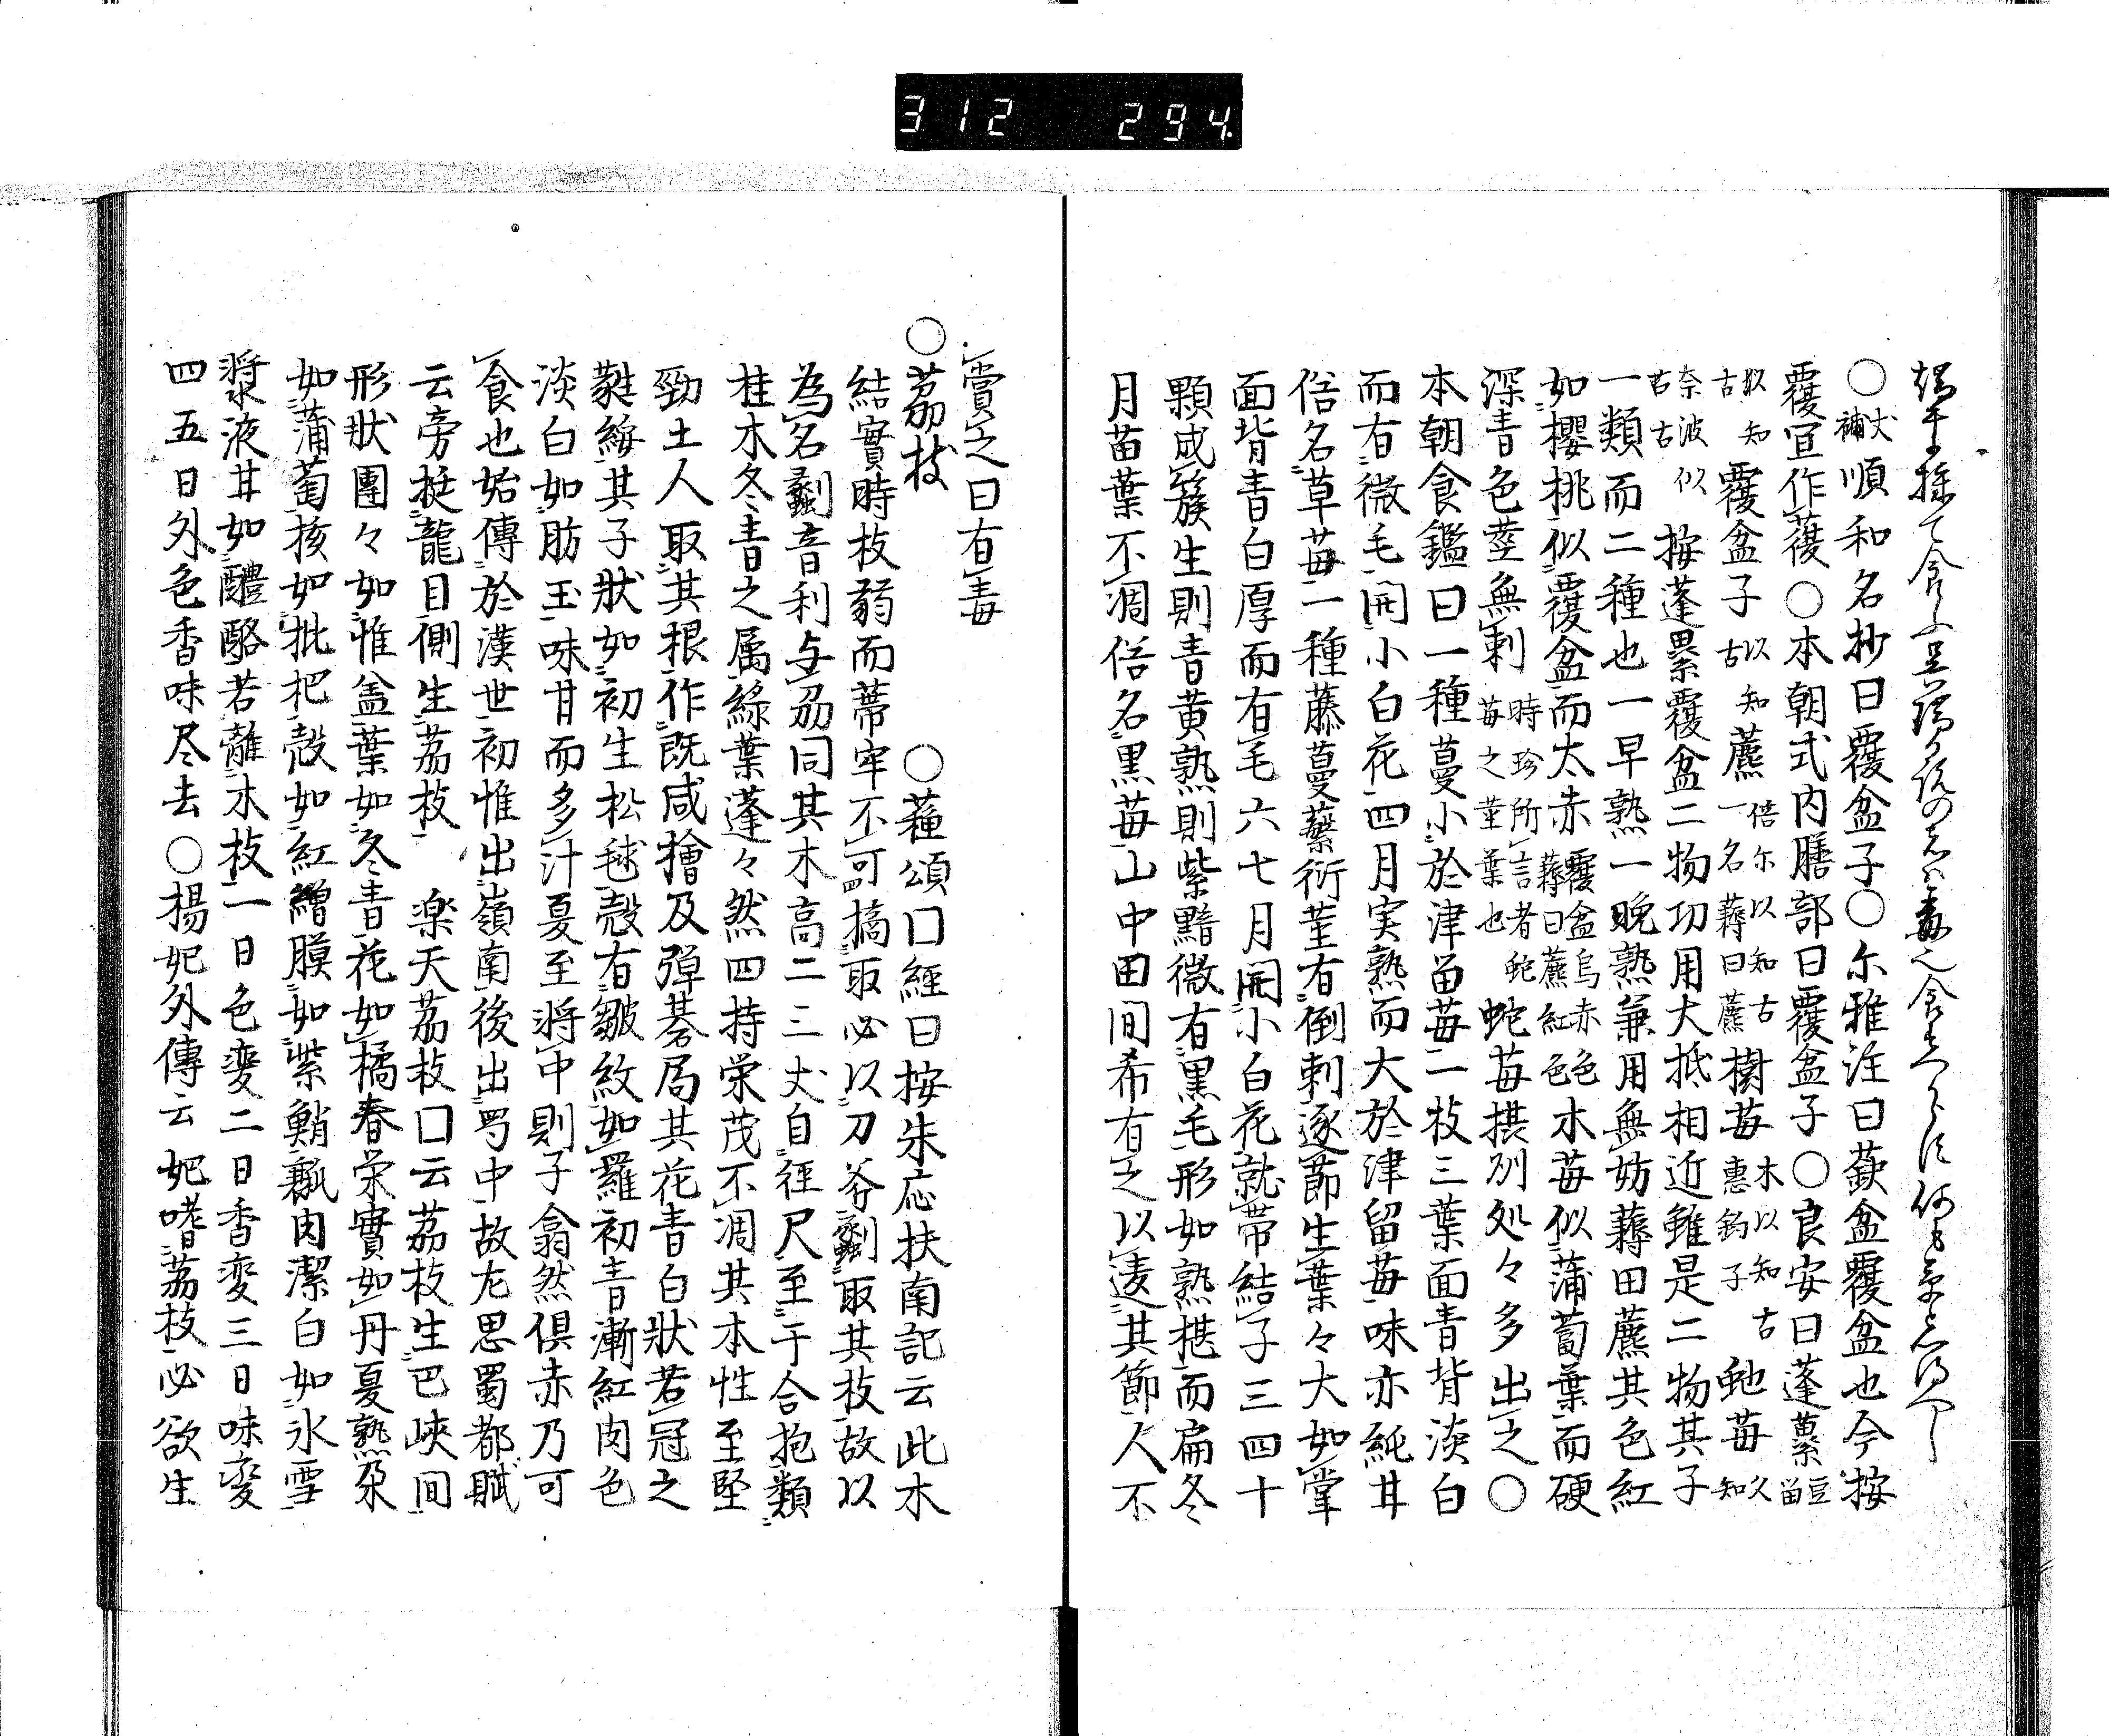 312 294.
○犬補順和名抄曰覆盆子○尓雅注曰蒛盆覆盆也今按
覆宜作蕧○本朝式内膳部曰覆盆子○良安曰蓬蔂豆留
以知古覆盆子以知古藨一名藨曰藨俗尓以知古樹苺木以知古惠鈎子虵苺久知
奈波以古按蓬蔂覆盆二物功用大抵相近雖是二物其子
一類而二種也一早熟一晩熟兼用無妨薅田藨其色紅
如櫻桃似覆盆而太赤覆盆烏赤色薅曰藨紅色木苺似蒲萄葉而硬
深青色莖無刺時珍所言者蛇苺之莖葉也蛇苺拱別処々多出之○
本朝食鑑曰一種蔓小於津留苺二枝三葉面青背淡白
而有微毛開小白花四月実熟而大於津留苺味亦純甘
俗名草苺一種藤蔓蘩衍莖有倒刺逐節生葉々大如掌
面背青白厚而有毛六七月開小白花就蒂結子三四十
顆成簇生則青黄熟則紫黯微有黒毛形如熟椹而扁冬
月苗葉不凋俗名黒苺山中田間希有之以凌其節人不
賞之曰有毒
○荔枝 ○蘓頌口經曰按朱応扶南記云此木
結實時枝弱而蒂牢不可摘取必以刀斧劙取其枝故以
為名劙音利与刕同其木高二三丈自徑尺至于合抱類
桂木冬青之属綠葉蓬々然四持栄茂不凋其本性至堅
勁土人取其根作既咸擔及弾棊局其花青白狀若冠之
蕤綏其子狀如初生松毬殼有皺紋如羅初青漸紅肉色
淡白如肪玉味甘而多汁夏至將中則子翕然倶赤乃可
食也始傳於漢世初惟出嶺南後出蜀中故尤思蜀都賦
云旁挺龍目側生荔枝 楽天荔枝口云荔枝生巴峽間
形狀團々如惟盖葉如冬青花如橘春栄實如丹夏熟朶
如蒲萄核如枇杷殼如紅繒膜如紫鮹瓤肉潔白如氷雪
漿液甘如醴酪若離木枝一日色変二日香変三日味変
四五日外色香味尽去○楊妃外傳云妃嗜荔枝必欲生